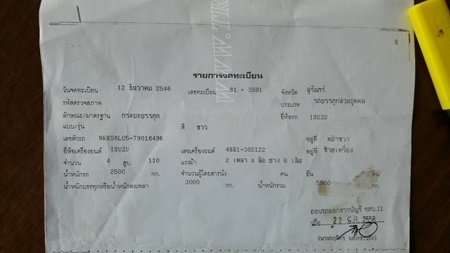 8
รายการจดทะเบียน
วันจดทะเบียน 12 ธันวาคม 2546 เลขทะเบียน 91-3591 จังหวัด สุรินทร์
รหัสตรวจสภาพ ประเภท รถยนต์บรรทุกส่วนบุคคล
ลักษณะ/มาตรฐาน กระบะบรรทุก ยี่ห้อรถ ISUZU
แบบ/รุ่น สี ขาว
เลขตัวรถ NKR58LU5-7901649K อยู่ที่
ยี่ห้อเครื่องยนต์ ISUZU เลขเครื่องยนต์ 4BE1-305122 อยู่ที่ ซ้ายเครื่อง
จำนวน 4 สูบ 110 แรงม้า 2 เพลา 4 ล้อ ยาง 6 เส้น
น้ำหนักรถ 2500 กก. จำนวนผู้โดยสารนั่ง คน ยืน คน
น้ำหนักบรรทุกหรือน้ำหนักลงเพลา 3000 กก. น้ำหนักรวม กก.
ถอนรถออกจากบัญชี ขสบ.11
เมื่อ